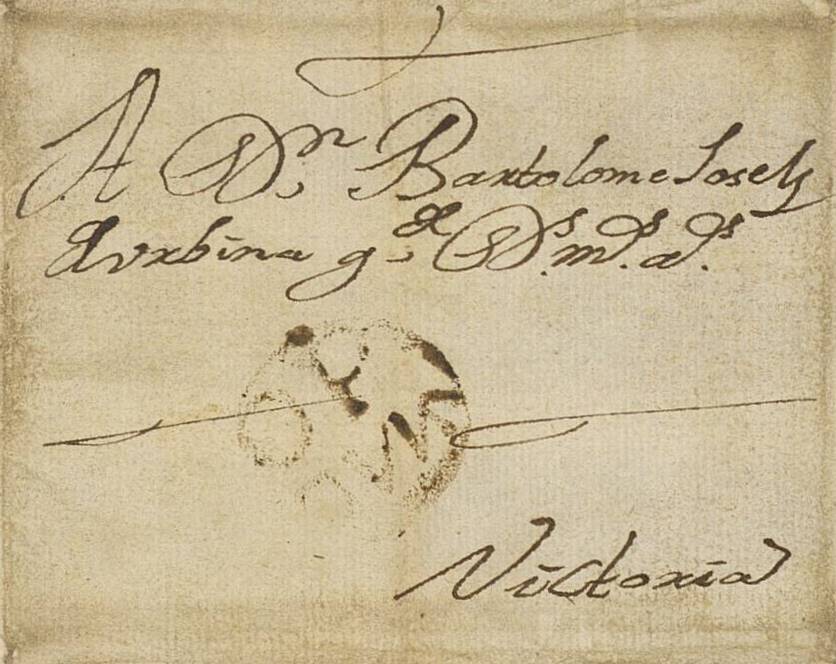 A Dn. Bartolome Joseph
de Urbina g.de Ds. ms. as.
Victoria